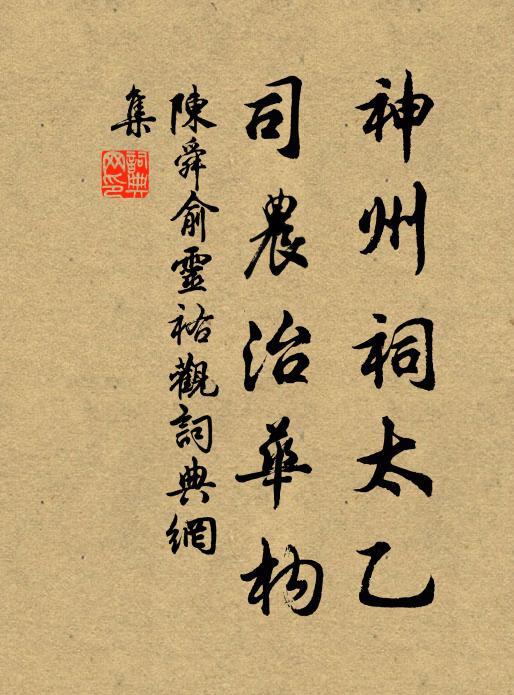 神州祠太乙
司農治華构
陳舜俞靈祐觀詞典網
集
詞典网印